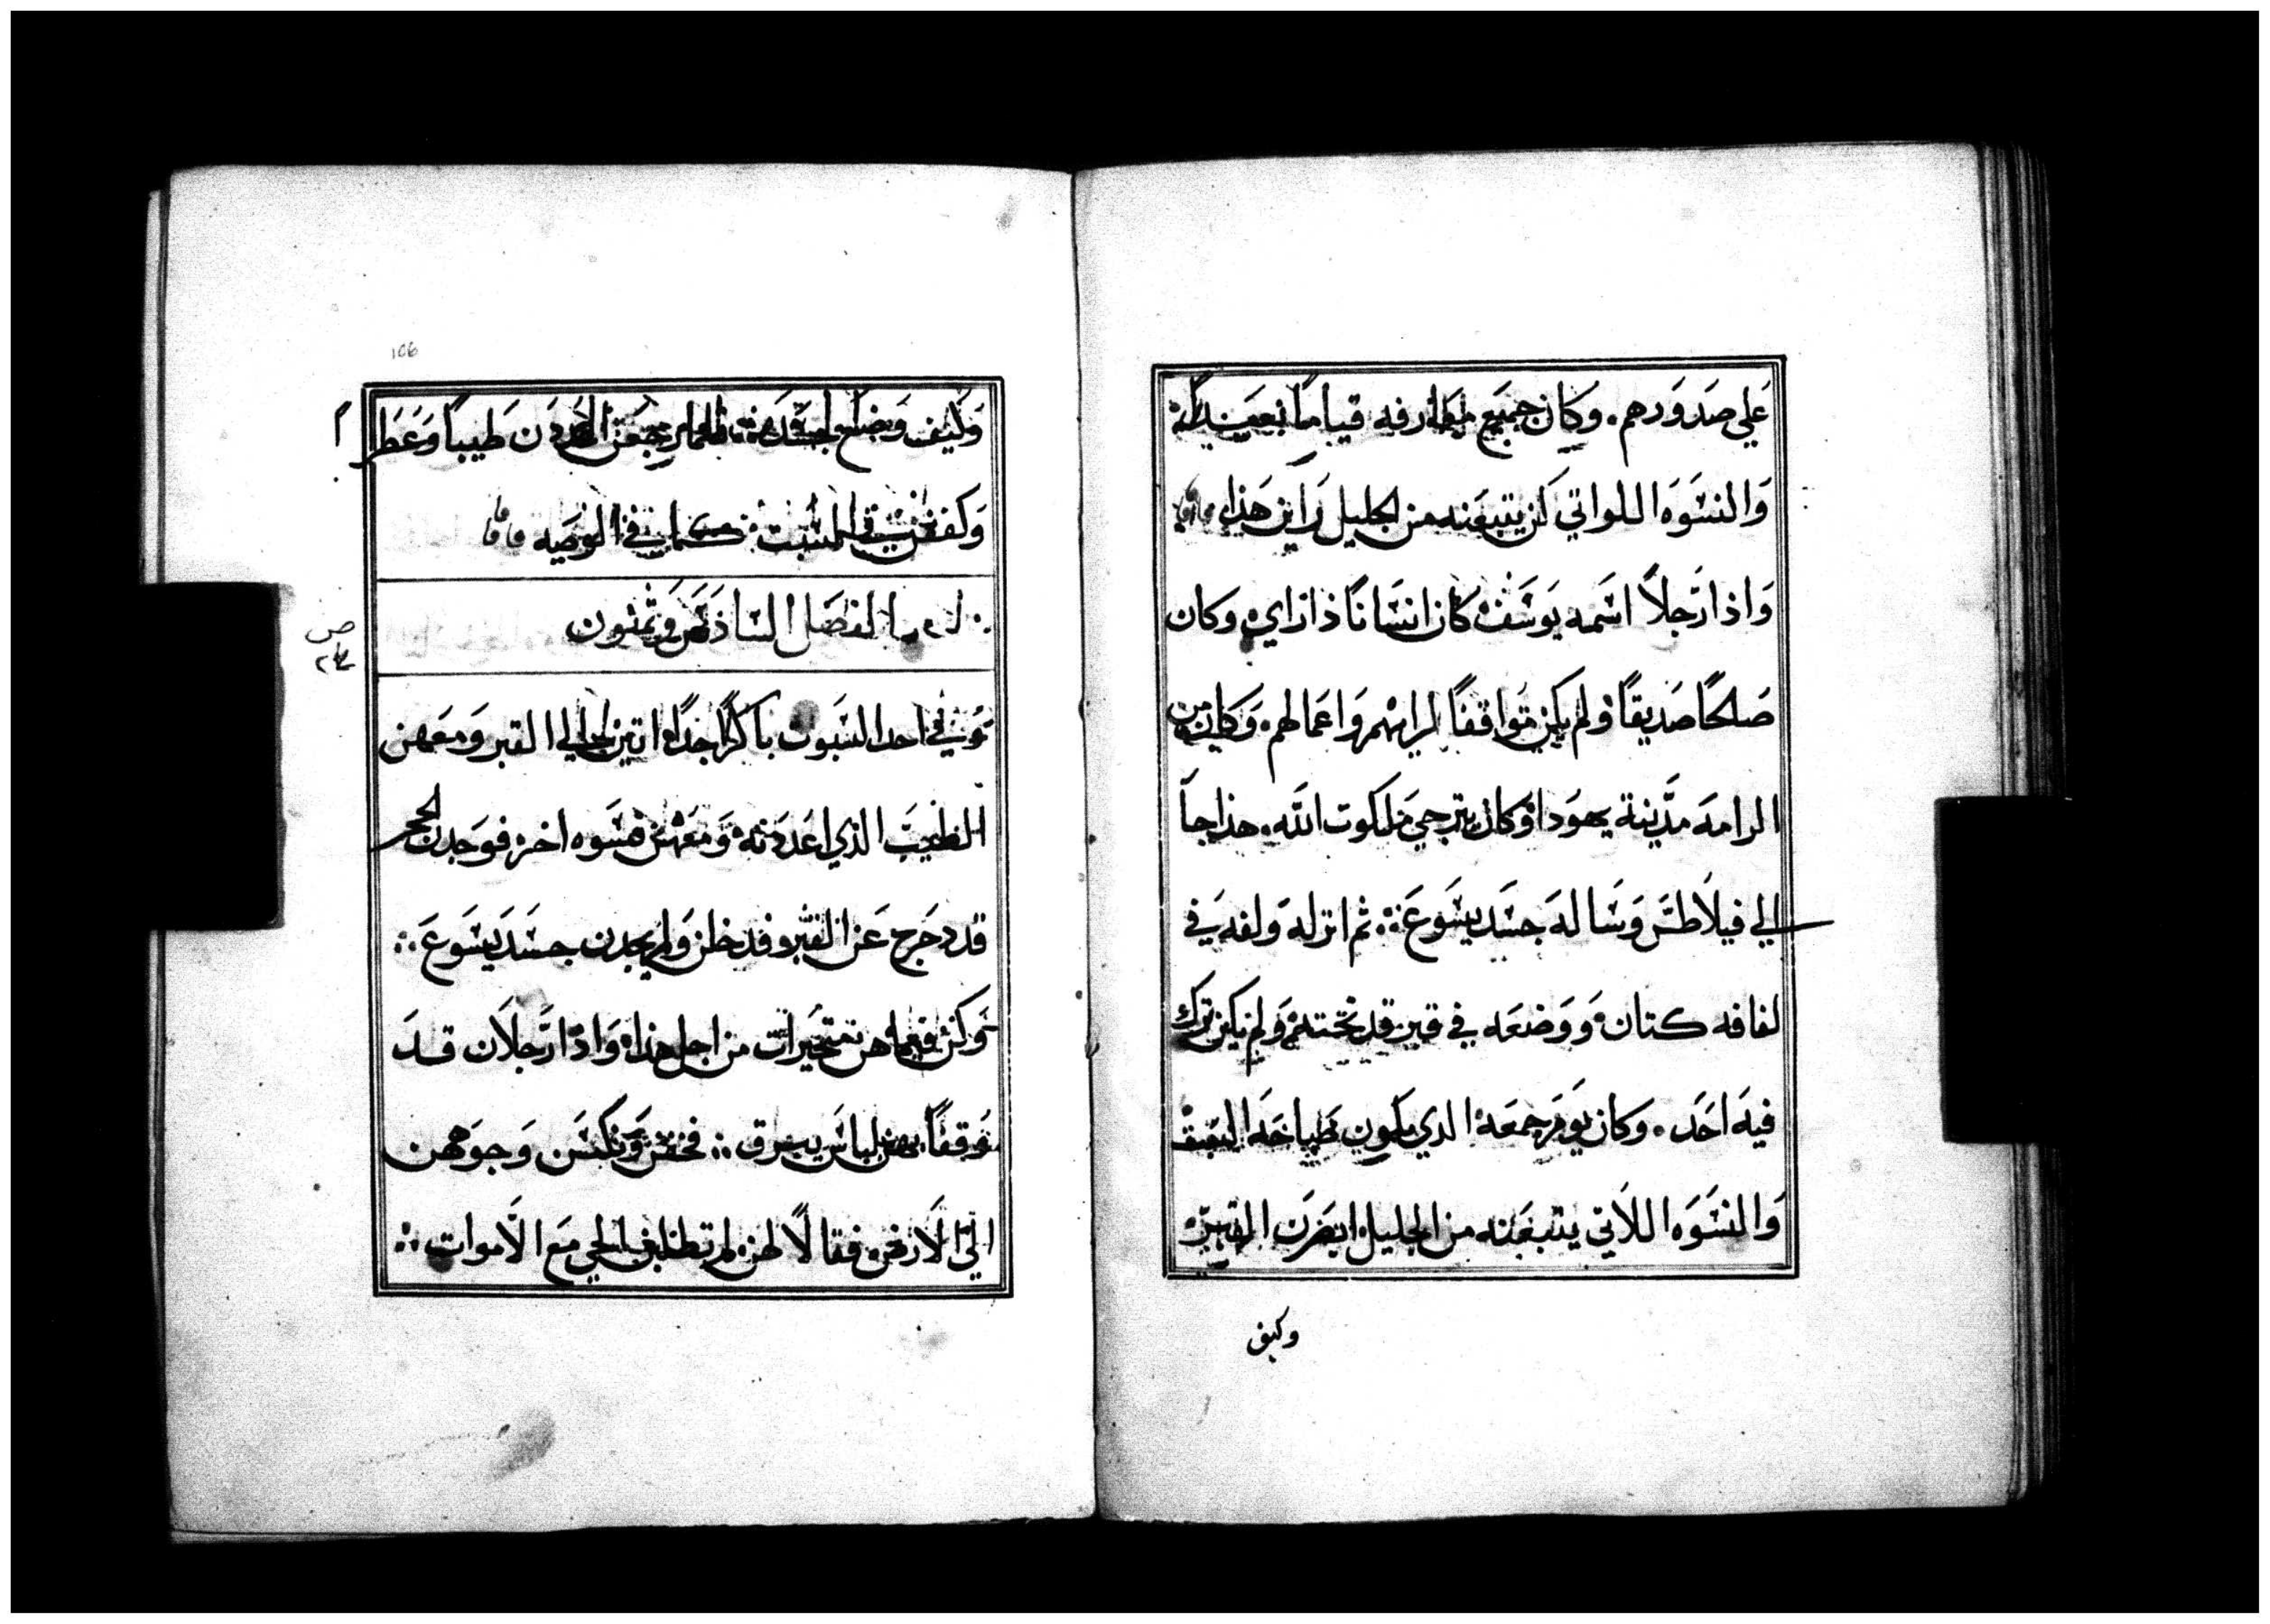 علي صدورهم. وكان جميع معارفه قياماً بعيداً
والنسوه اللواتي كن يتبعنه من الجليل راين هذا
واذا رجلاً اسمه يوسف كان انساناً ذا راي وكان
صلحاً صديقاً ولم يكن موافقاً لرايهم واعمالهم. وكان من
الرامه مدينة يهودا وكان يترجي ملكوت الله. هذا جا
الي فيلاطس وساله جسد يسوع ثم انزله ولفه في
لفافه كتان ووضعه في قبر قد نحته ولم يكن ترك
فيه احد. وكان يوم جمعه الذي يكون صباحه السبت
والنسوه اللاتي يتبعنه من الجليل ابصرن القبر
وكيف
106
وكيف وضع جسده فلما رجعن اعددن طيباً وعطراً
وكففن في السبت كما في الوصيه
الفصل السادس وثمنون
وفي احد السبوت باكراً جداً اتين الي القبر ومعهن
الطيب الذي اعددنه ومعهن نسوه اخر فوجدن الحجر
قد دحرج عن القبر وفدخلن ولم يجدن جسد يسوع
وكن فيما هن متحيرات من اجل هذا واذا رجلان قد
وقفا بهن لباس يبرق فخفن ونكسن وجوههن
الي الارض فقالا لهن لم تطلبن الحي مع الاموات
ص